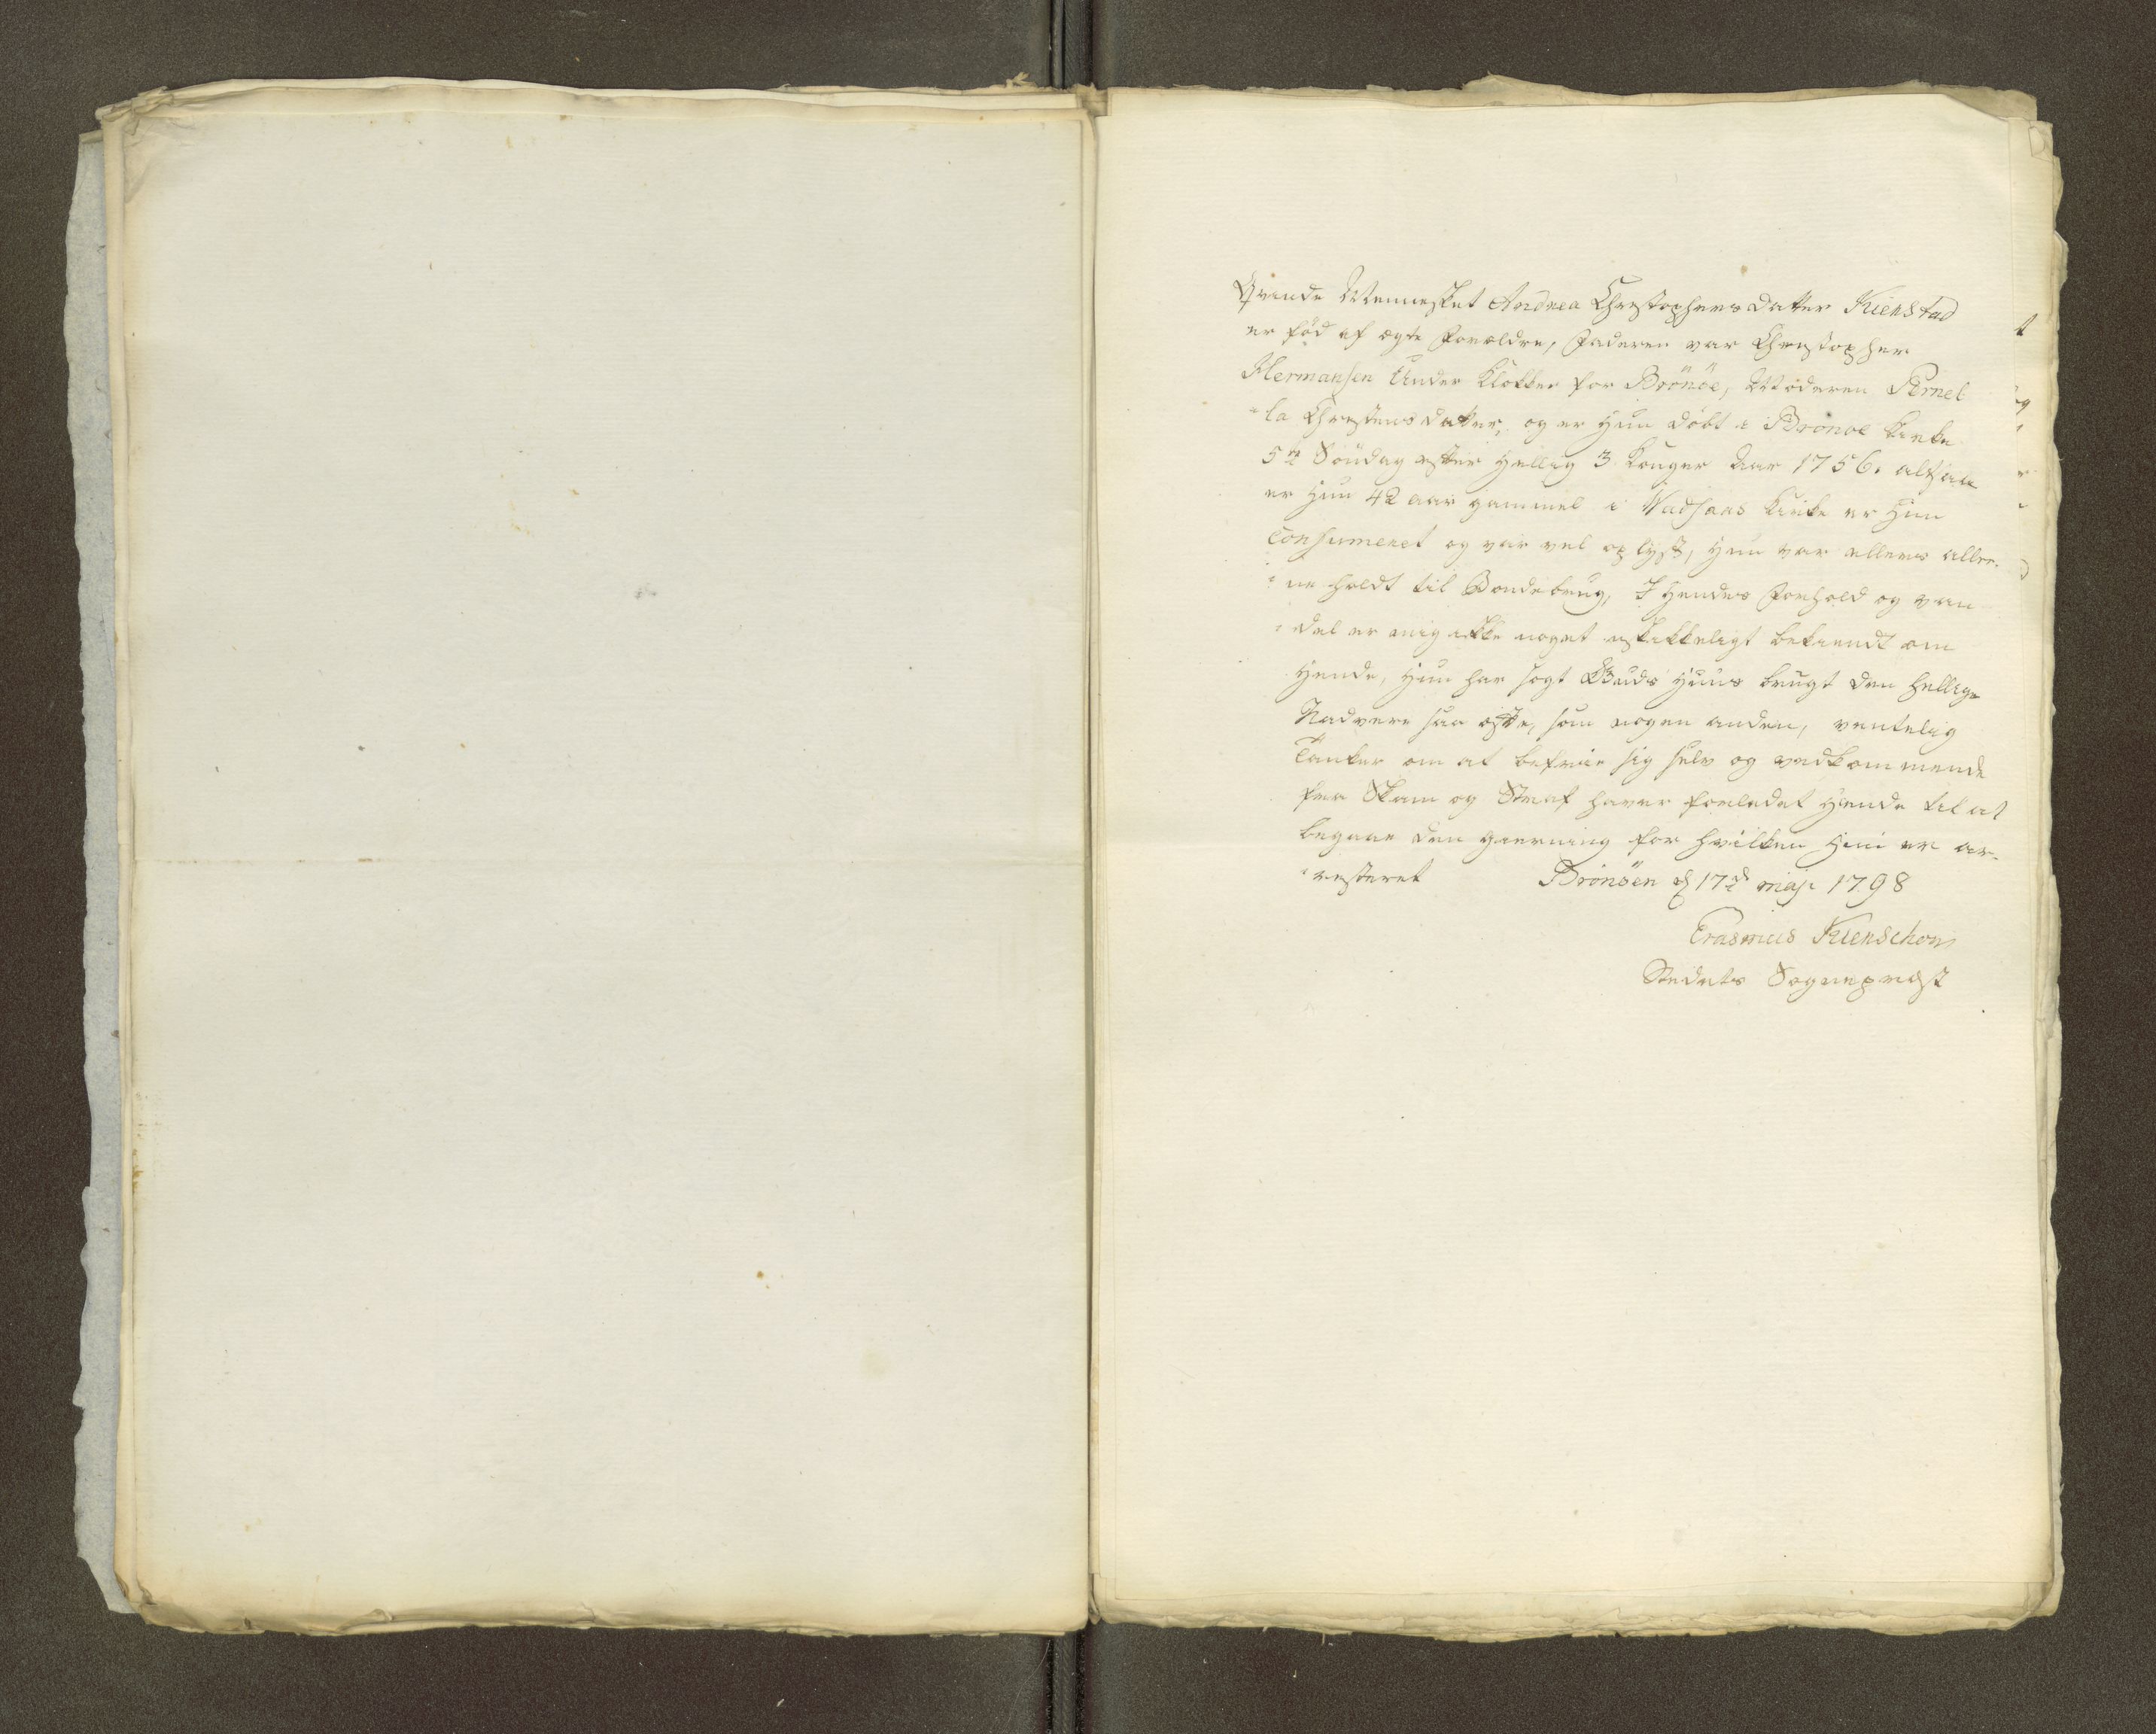 Qvinde Mennesket Andrea Christophersdatter Kienstad
er föd af ægte Forældre, Faderen var Christopher
Hermansen Under Klokker for Brönöe, Moderen Pernel
-la Christensdatter, og er Hun döbt i Bronoe Kirke
5te Söndag efter Hellig 3 Konger Aar 1756. altsaa
er Hun 42 aar gammel i Wadsaas Kirke er Hun
Confirmeret og var vel oplyst, Hun var ellers alle-
ne holdt til Bondebrug, I Hendes Forhold og van
del er mig ikke noget uskikkeligt bekiendt om
Hende, Hun har sögt Guds Huus brugt den hellige
Nadvere saa ofte, som nogen anden, ventelig
Tanker om at befrie sig selv og vedkommende
fra Skam og Straf haver forledet Hende til at
begaae den gierning for hvilken Hun er ar-
resteret Brönöen d 17de maji 1798
Erasmus Kienschow
Stedets Sognepræst